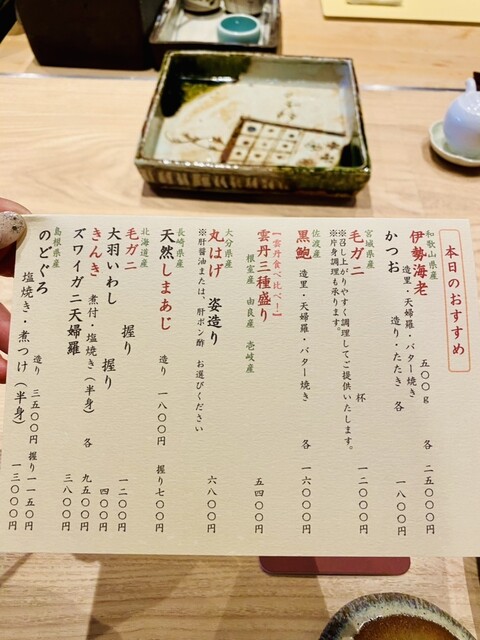 本日のおすすめ
和歌山県産
伊勢海老 五〇〇g 各 二五〇〇〇円
造里・天婦羅・バター焼き
かつお 造り・たたき 各 一八〇〇円
宮城県産
毛ガニ 杯 一二〇〇〇円
※召し上がりやすく調理してご提供いたします。
※片身調理も承ります。
佐渡産
黒鮑 造里・天婦羅・バター焼き 各 一六〇〇〇円
【雲丹食べ比べ】
雲丹三種盛り 五四〇〇円
根室産 由良産 壱岐産
大分県産
丸はげ 姿造り 六八〇〇円
※肝醤油または、肝ポン酢 お選びください
長崎県産
天然しまあじ 造り 一八〇〇円 握り七〇〇円
北海道産
毛ガニ 握り 一二〇〇円
大羽いわし 握り 四〇〇円
きんき 煮付・塩焼き(半身) 各 九五〇〇円
ズワイガニ天婦羅 三八〇〇円
島根県産
のどぐろ 造り 三五〇〇円 握り一一五〇円
塩焼き・煮つけ(半身) 一三〇〇〇円